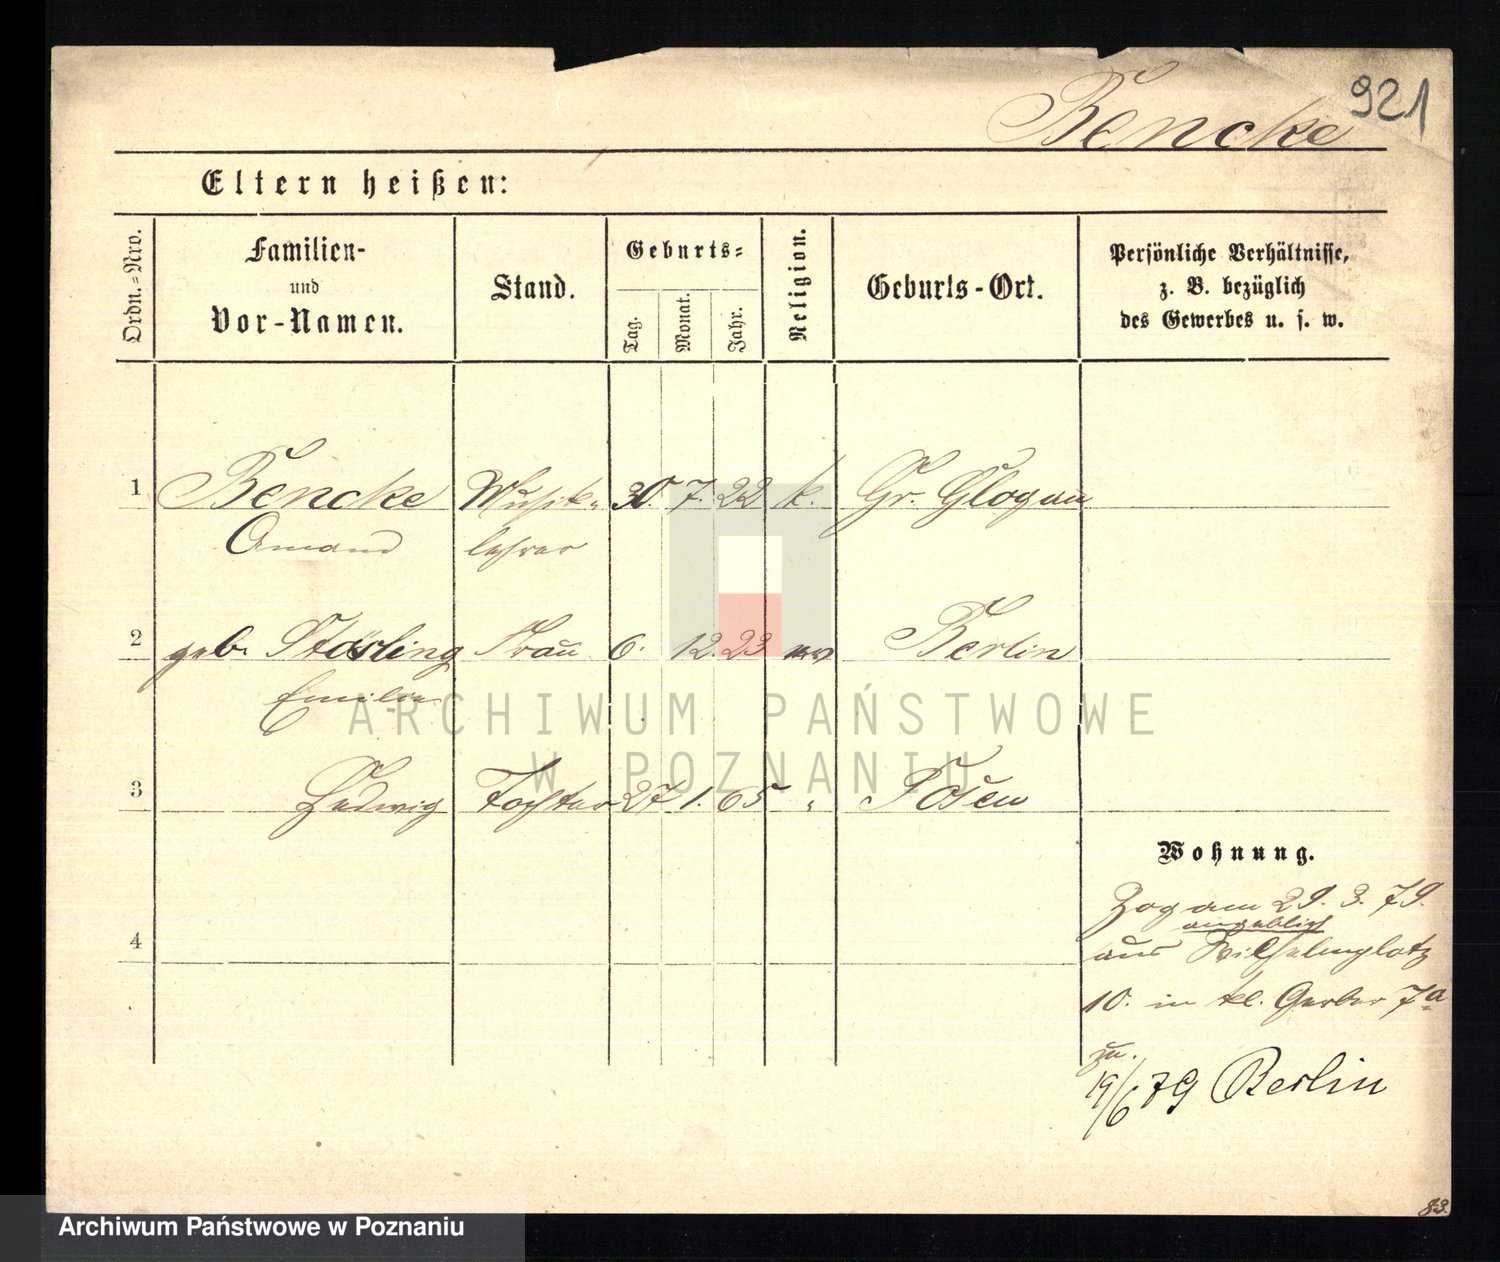 921
Bencke
Eltern heißen:
Ordn.=Nro.
Familien-
und
Vor-Namen.
Stand.
Geburts=
Tag.
Monat.
Jahr.
Religion.
Geburts-Ort.
Persönliche Verhältnisse,
z. B. bezüglich
des Gewerbes u. s. w.
1 Bencke Musik- 30. 7. 22 k. Gr. Glogau
Amand lehrer
2 geb. Störling Frau 6. 12. 23 ev Berlin
Emilie
3 Hedwig Tochter 27 1. 65 " Posen
Wohnung.
Zog am 29. 3. 79.
angeblich
aus Wilhelmsplatz
10. in kl. Gerber 7a
4
zu.
19/6 79 Berlin
83.
ARCHIWUM PAŃSTWOWE
W POZNANIU
Archiwum Państwowe w Poznaniu